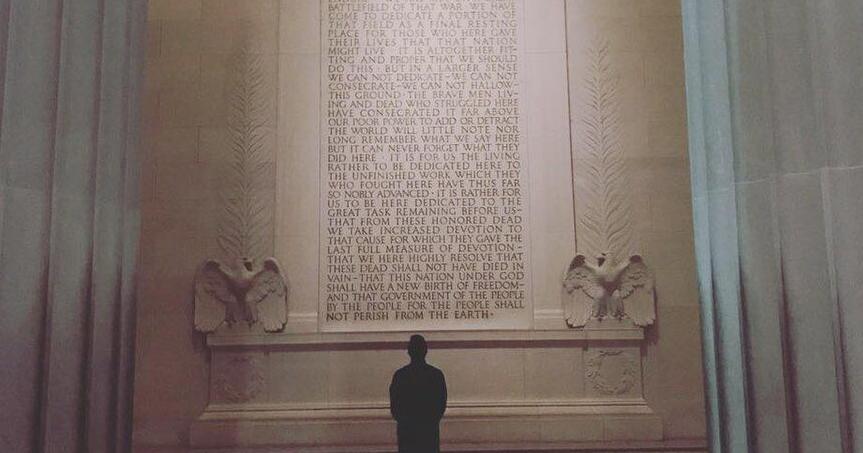 BATTLEFIELD OF THAT WAR · WE HAVE
COME TO DEDICATE A PORTION OF
THAT FIELD AS A FINAL RESTING
PLACE FOR THOSE WHO HERE GAVE
THEIR LIVES THAT THAT NATION
MIGHT LIVE · IT IS ALTOGETHER FIT-
TING AND PROPER THAT WE SHOULD
DO THIS · BUT IN A LARGER SENSE
WE CAN NOT DEDICATE-WE CAN NOT
CONSECRATE-WE CAN NOT HALLOW-
THIS GROUND · THE BRAVE MEN LIV-
ING AND DEAD WHO STRUGGLED HERE
HAVE CONSECRATED IT FAR ABOVE
OUR POOR POWER TO ADD OR DETRACT
THE WORLD WILL LITTLE NOTE NOR
LONG REMEMBER WHAT WE SAY HERE
BUT IT CAN NEVER FORGET WHAT THEY
DID HERE · IT IS FOR US THE LIVING
RATHER TO BE DEDICATED HERE TO
THE UNFINISHED WORK WHICH THEY
WHO FOUGHT HERE HAVE THUS FAR
SO NOBLY ADVANCED · IT IS RATHER FOR
US TO BE HERE DEDICATED TO THE
GREAT TASK REMAINING BEFORE US-
THAT FROM THESE HONORED DEAD
WE TAKE INCREASED DEVOTION TO
THAT CAUSE FOR WHICH THEY GAVE THE
LAST FULL MEASURE OF DEVOTION-
THAT WE HERE HIGHLY RESOLVE THAT
THESE DEAD SHALL NOT HAVE DIED IN
VAIN-THAT THIS NATION UNDER GOD
SHALL HAVE A NEW BIRTH OF FREEDOM-
AND THAT GOVERNMENT OF THE PEOPLE
BY THE PEOPLE FOR THE PEOPLE SHALL
NOT PERISH FROM THE EARTH·